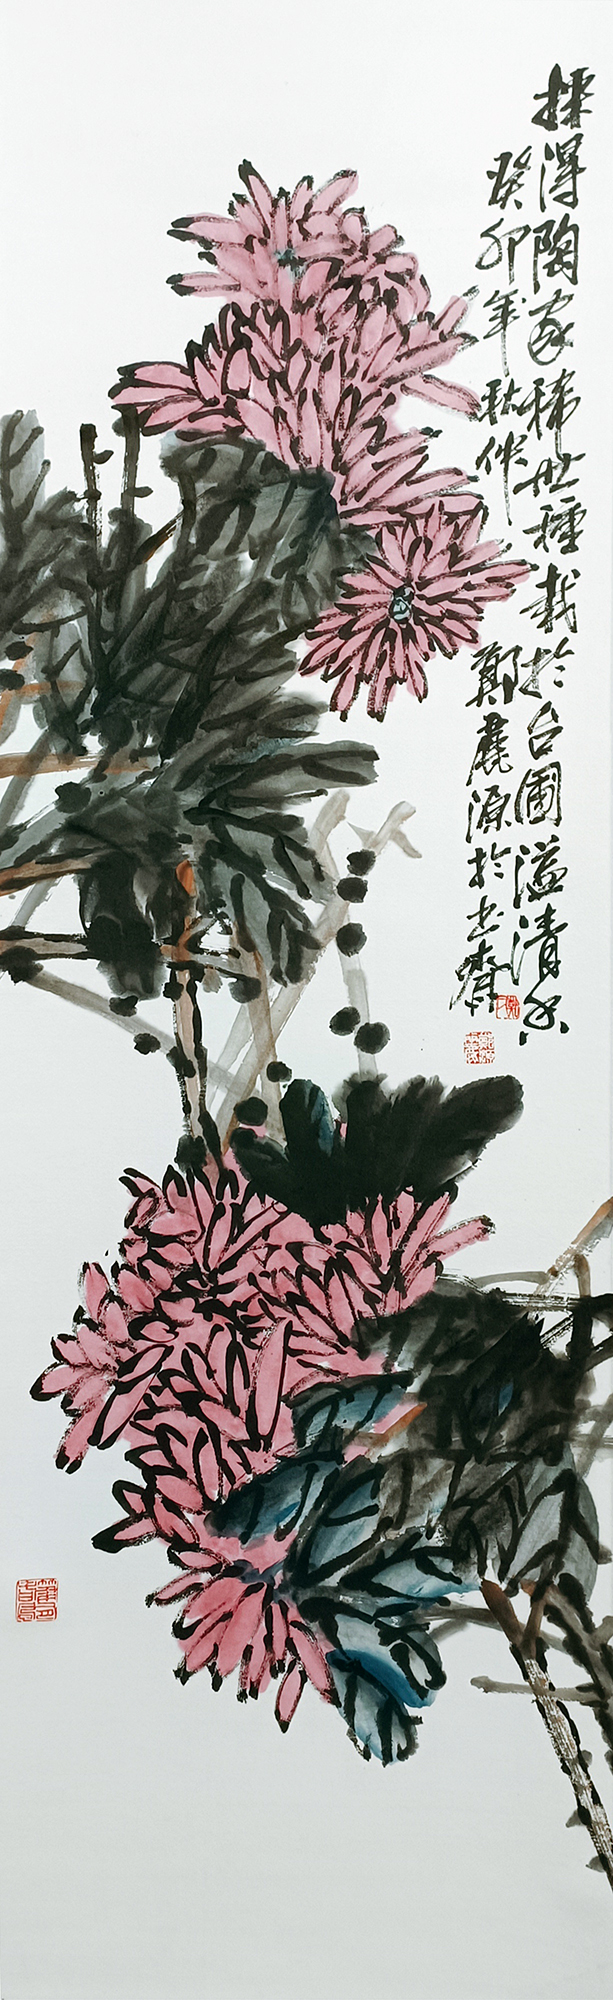 採得陶家稀世種栽於台圃溢清香
癸卯年秋作
鄭麗源於書齋